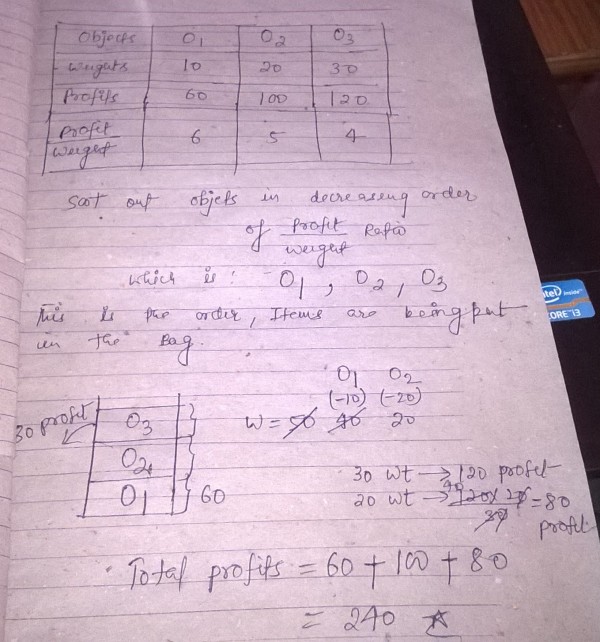 Objects O1 O2 O3
Weights 10 20 30
Profits 60 100 120
Profit/Weight 6 5 4
Sort out objets in decreasing order
of Profit/Weight Ratio
which is: O1, O2, O3
This is the order, Items are being put
in the Bag.
O1 O2
(-10) (-20)
W = 50 40 20
30 profit
O3
O2
O1 } 60
30 wt → 120 profit
20 wt → 120 × 20 / 30 = 80
40
profit
Total profits = 60 + 100 + 80
= 240
intel inside
CORE i3